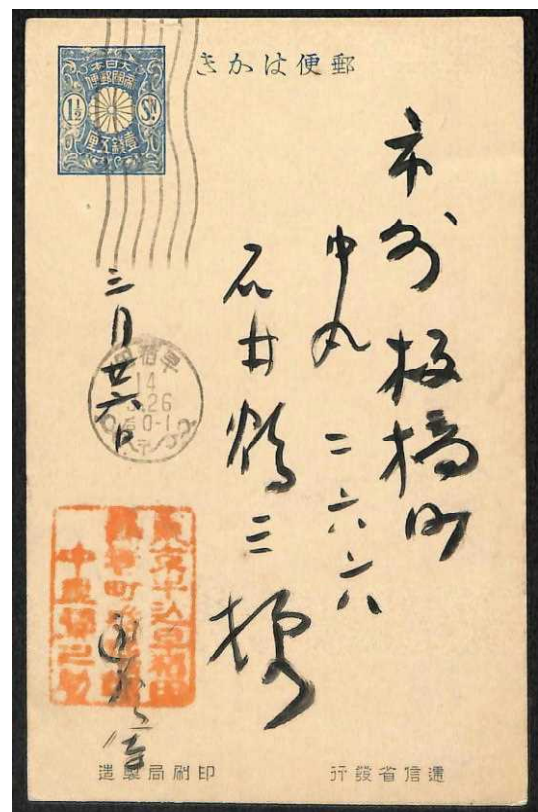 郵便はかき
大日本
帝國郵便
1½ Sn
壹錢五厘
市外板橋町
中丸 二六六六
石井鶴三様
三月廿六日
早稻田
14
3.26
后0-1
東京牛込早稲田
中
遞信省發行
印刷局製造